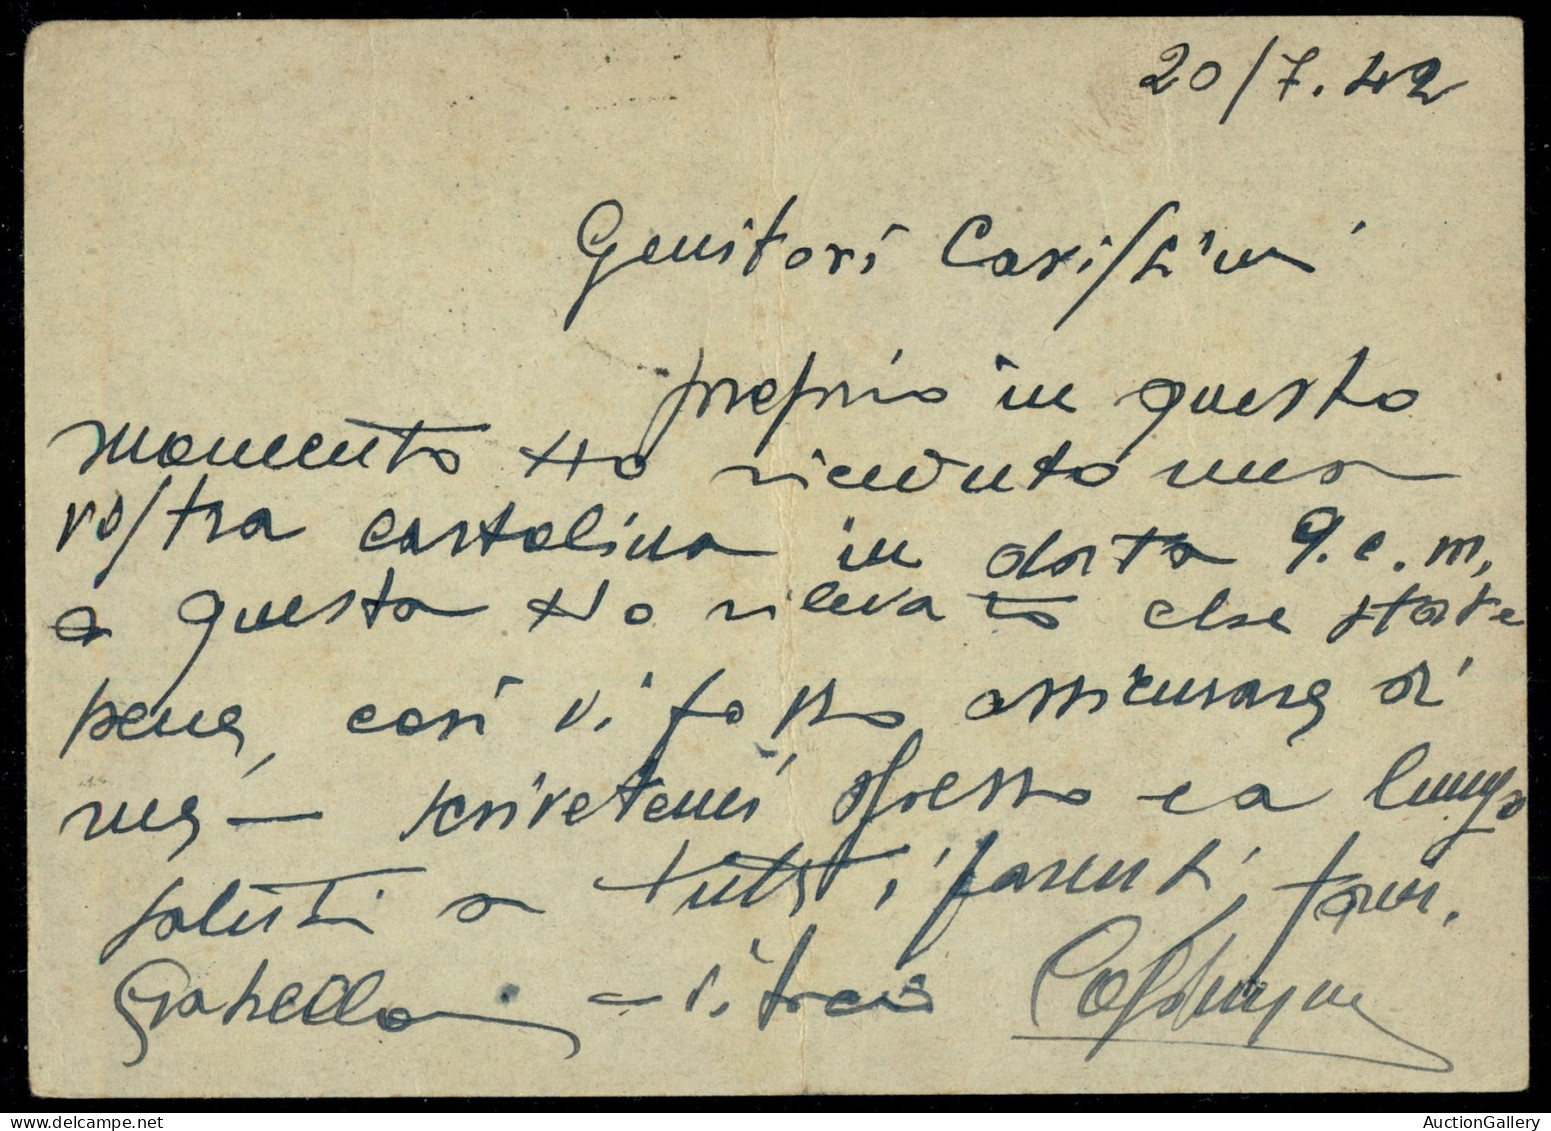 20/7.42
Genitori Carissimi
proprio in questo
momento ho ricevuto una
vostra cartolina in data 9.c.m,
e questa ho rilevato che state
bene, così vi posso assicurare di
me, — scrivetemi spesso e a lungo
saluti a tutti i parenti, fam.
Gabella — Vi bacio
AuctionGallery